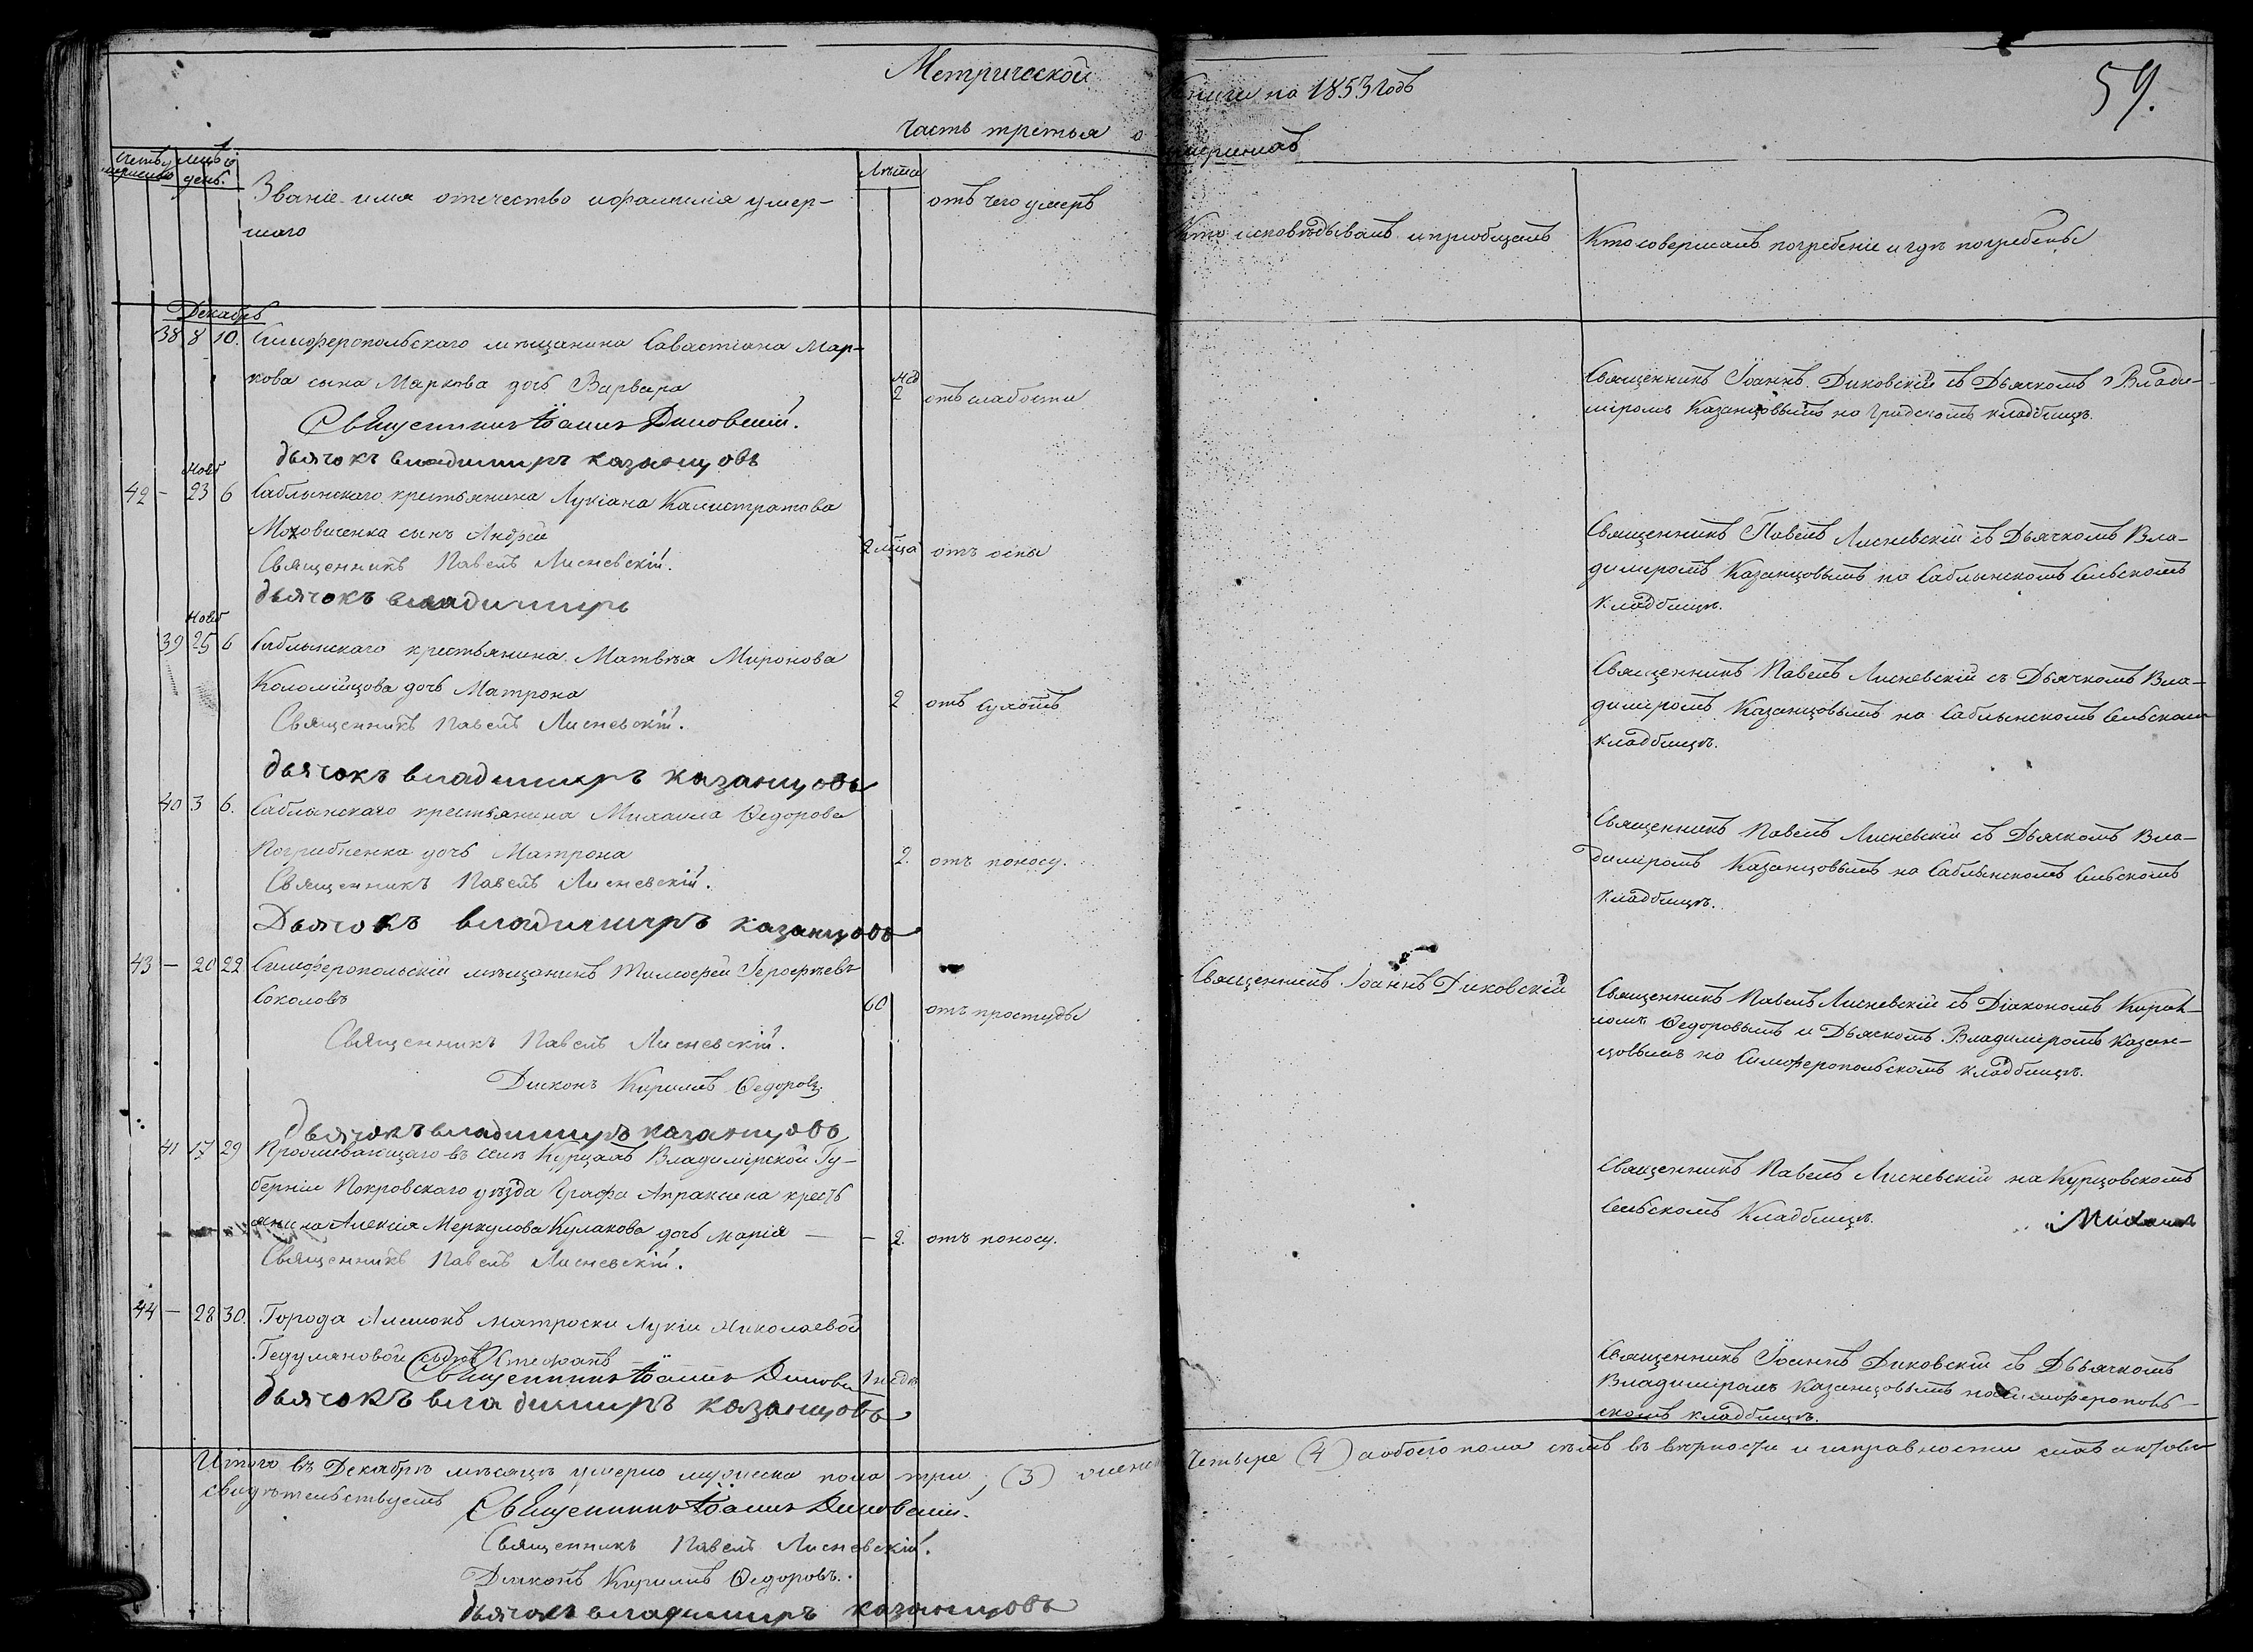 Метрической книги на 1853 годъ
59.
Часть третья о умершихъ
Счетъ умершихъ
мѣс. и день.
Званіе имя отечество и фамилія умер-
шаго
Лѣта
отъ чего умеръ
Кто исповѣдывалъ и приобщалъ
Кто совершалъ погребеніе и гдѣ погребены
Декабрь
38 8 10. Симферопольскаго мѣщанина Савастіана Мар-
кова сына Маркова дочь Варвара
нед 2 отъ слабости
Священникъ Іоаннъ Диковскій съ Дьячкомъ Влади-
міромъ Казанцовымъ на Градскомъ кладбищѣ.
Священникъ Іоаннъ Диковскій.
дьячокъ владимиръ казанцовъ
Нояб
42 - 23 6 Саблынскаго крестьянина Лукіана Калистратова
Моховиченка сынъ Андрей
2 мѣца отъ оспы
Священникъ Павелъ Лисневскій съ Дьячкомъ Вла-
димиромъ Казанцовымъ на Саблынскомъ Сельскомъ
кладбищѣ.
Священникъ Павелъ Лисневскій.
дьячокъ владимиръ
Нояб
39 25 6 Саблынскаго крестьянина Матвѣя Миронова
Коломійцова дочь Матрона
2 отъ сухотъ
Священникъ Павелъ Лисневскій съ Дьячкомъ Вла-
диміромъ Казанцовымъ на Саблынскомъ Сельскомъ
кладбищѣ.
Священникъ Павелъ Лисневскій.
дьячокъ владимиръ казанцовъ
40 3 6. Саблынскаго крестьянина Михаила Ѳедорова
Погрибненка дочь Матрона
2. отъ поносу.
Священникъ Павелъ Лисневскій съ Дьячкомъ Вла-
диміромъ Казанцовымъ на Саблынскомъ Сельскомъ
кладбищѣ.
Священникъ Павелъ Лисневскій.
Дьячокъ владимиръ казанцовъ
43 - 20 22 Симферопольскій мѣщанинъ Тимофей Герофѣевъ
Соколовъ
60 отъ простуды
Священникъ Іоаннъ Диковскій
Священникъ Павелъ Лисневскій съ Діакономъ Кирил-
ломъ Ѳедоровымъ и Дьячкомъ Владиміромъ Казан-
цовымъ на Симферопольскомъ кладбищѣ.
Священникъ Павелъ Лисневскій.
Диаконъ Кириллъ Ѳедоровъ.
дьячокъ владимиръ казанцовъ
41 17 29 Проживающаго въ селѣ Курцахъ Владимірской Гу-
берніи Покровскаго уѣзда Графа Апраксина кресть
янина Алексія Меркулова Кулакова дочь Марія
- 2. отъ поносу.
Священникъ Павелъ Лисневскій на Курцовскомъ
Сельскомъ Кладбищѣ.
Священникъ Павелъ Лисневскій.
44 - 28 30. Города Алешокъ матроски Лукіи Николаевой
Гедулановой сынъ Стефанъ
1 недѣ
Священникъ Іоаннъ Диковскій съ Дьячкомъ
Владиміромъ Казанцовымъ на Симферополь-
скомъ кладбищѣ.
Священникъ Іоаннъ Диковскій
дьячокъ владимиръ казанцовъ
Итого въ Декабрѣ мѣсяцѣ умерло мужеска пола три (3) женска Четыре (4) а обоего пола семь въ вѣрности и исправности сихъ актовъ
свидѣтельствуемъ
Священникъ Іоаннъ Диковскій.
Священникъ Павелъ Лисневскій.
Диаконъ Кириллъ Ѳедоровъ.
дьячокъ владимиръ казанцовъ